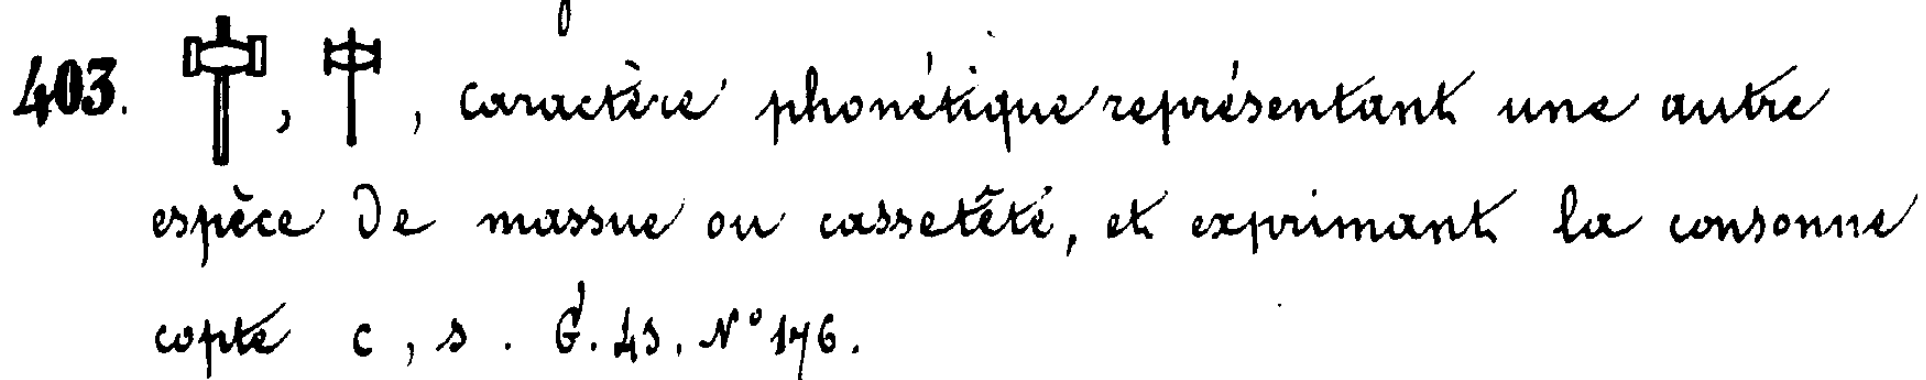 403. , , caractère phonétique représentant une autre
espèce de massue ou cassetêté, et exprimant la consonne
copte c, s. G. 45. N° 176.